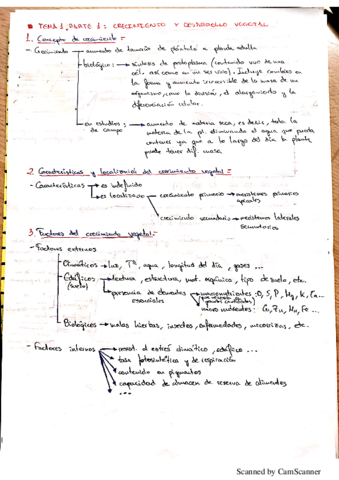 • TEMA 1, PARTE 1: CRECIMIENTO Y DESARROLLO VEGETAL
1. Concepto de crecimiento =
- Crecimiento → aumento de tamaño de plántula a planta adulta
→ biológico: → síntesis de protoplasma (contenido vivo de una
célula así como en un ser vivo). Incluye cambios en
la forma y aumento irreversible de la masa de un
organismo, como la división, el alargamiento y la
diferenciación celular.
→ en estudios: → aumento de materia seca, es decir, toda la
de campo
materia de la pl. eliminando el agua que pueda
contener ya que a lo largo del día la planta
puede tener dif. masa.
2. Características y localización del crecimiento vegetal =
- Características → es indefinido
→ es localizado → crecimiento primario → meristemos primarios
apicales
→ crecimiento secundario → meristemos laterales
secundarios
3. Factores del crecimiento vegetal =
- Factores externos
Climáticos → luz, Tª, agua, longitud del día, gases ...
Edáficos → textura, estructura, mat. orgánica, tipo de suelo, etc.
(suelo)
→ presencia de elementos → macronutrientes: D, S, P, Mg, K, Ca...
esenciales
micronutrientes: Cu, Zn, Mn, Fe ...
Biológicos → malas hierbas, insectos, enfermedades, micorrizas, etc.
- Factores internos → resist. al estrés climático, edáfico ...
→ tasa fotosintética y de respiración
→ contenido en pigmentos
→ capacidad de almacen de reserva de alimentos
→ ...
Scanned by CamScanner